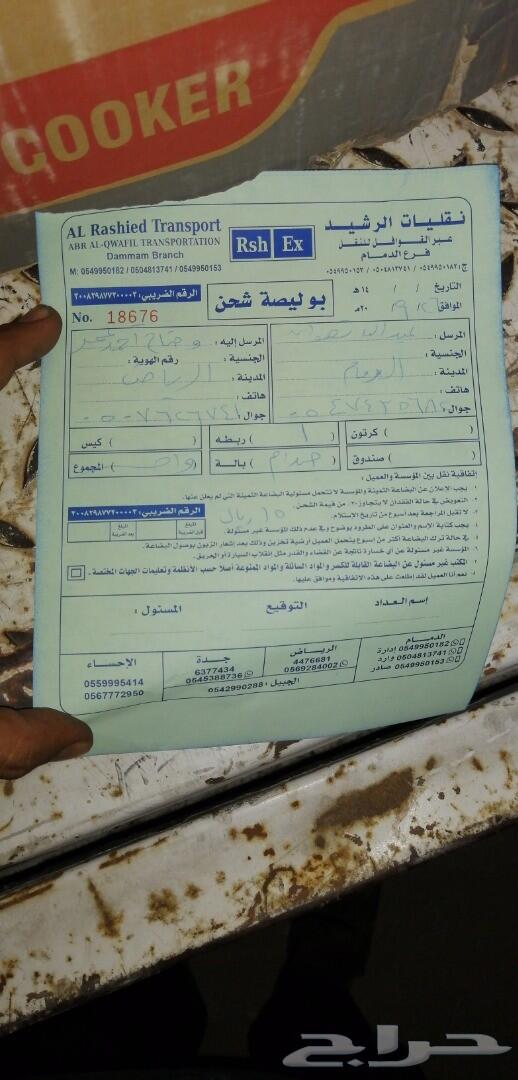 COOKER
AL Rashied Transport
ABR AL-QWAFIL TRANSPORTATION
Dammam Branch
M: 0549950182 / 0504813741 / 0549950153
Rsh Ex
نقليات الرشيد
عبر القوافل للنقل
فرع الدمام
ج: ٠٥٤٩٩٥٠١٨٢ / ٠٥٠٤٨١٣٧٤١ / ٠٥٤٩٩٥٠١٥٣
الرقم الضريبي:
No. 18676
بوليصة شحن
التاريخ / / ١٤هـ
الموافق ٢٠م
المرسل :
الجنسية :
المدينة : الدمام
هاتف :
جوال :
المرسل إليه :
الجنسية : رقم الهوية :
المدينة : الرياض
هاتف :
جوال :
( ) كرتون
( ١ ) ربطه
( ) كيس
( ) صندوق
( ) بالة
( ) المجموع
إتفاقية نقل بين المؤسسة والعميل :
١. يجب الإعلان عن البضاعة الثمينة والمؤسسة لا تتحمل مسئولية البضاعة الثمينة التي لم يعلن عنها.
٢. التعويض في حالة الفقدان لا يتجاوز من قيمة الشحن.
٣. لا تقبل المراجعة بعد أسبوع من تاريخ الإستلام.
١٥ ريال
الرقم الضريبي:
المبلغ قبل الضريبة
المبلغ بعد الضريبة
٤. يجب كتابة الإسم والعنوان على الطرود بوضوح وفي عدم ذلك المؤسسة غير مسئولة.
٥. في حالة ترك البضاعة أكثر من أسبوع يتحمل العميل أرضية تخزين وذلك بعد إشعار الزبون بوصول البضاعة.
٦. المؤسسة غير مسئولة عن أي خسارة ناتجة عن القضاء والقدر مثل إنقلاب السيارة أو الحريق.
٧. المكتب غير مسئول عن البضاعة القابلة للكسر والمواد السائلة والمواد الممنوعة أصلا حسب الأنظمة وتعليمات الجهات المختصة.
نعم أنا العميل لقد إطلعت على هذه الاتفاقية وموافق عليها.
إسم العداد
التوقيع
المسئول :
الدمام
0549950182 إدارة
0504813741 وارد
0549950153 صادر
الرياض
4476681
0569284002
جدة
6377434
0545388736
الجبيل : 0542990288
الإحساء
0559995414
0567772950
حراج